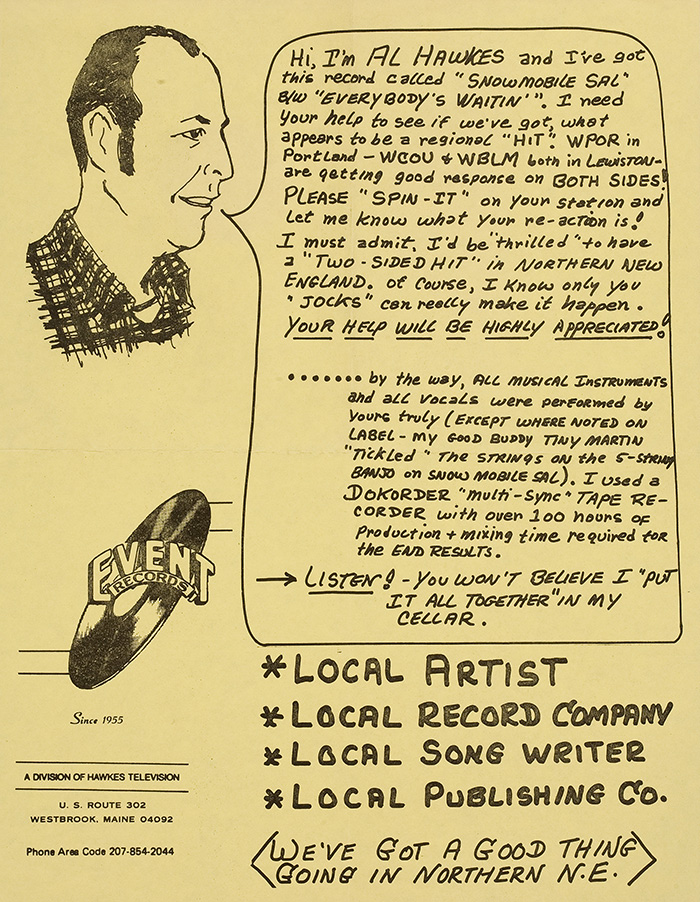 Hi, I'm AL HAWKES and I've got
this record called "SNOWMOBILE SAL"
B/W "EVERYBODY'S WAITIN'". I need
your help to see if we've got, what
appears to be a regional "HIT". WPOR in
Portland - WCOU & WBLM both in LEWISTON-
are getting good response on BOTH SIDES!
PLEASE "SPIN-IT" on your station and
let me know what your re-action is!
I must admit, I'd be "thrilled" to have
a "TWO-SIDED HIT" in NORTHERN NEW
ENGLAND. Of course, I know only you
"JOCKS" can really make it happen.
YOUR HELP WILL BE HIGHLY APPRECIATED!
....... by the way, ALL MUSICAL INSTRUMENTS
and all vocals were performed by
yours truly (EXCEPT WHERE NOTED ON
LABEL - MY GOOD BUDDY TINY MARTIN
"TICKLED" THE STRINGS ON THE 5-STRING
BANJO on SNOW MOBILE SAL). I used a
DOKORDER "multi-sync" TAPE RE-
CORDER with over 100 hours of
Production + mixing time required for
the END RESULTS.
→ LISTEN! - YOU WON'T BELIEVE I "PUT
IT ALL TOGETHER" IN MY
CELLAR.
EVENT
RECORDS
Since 1955
A DIVISION OF HAWKES TELEVISION
U. S. ROUTE 302
WESTBROOK, MAINE 04092
Phone Area Code 207-854-2044
*LOCAL ARTIST
*LOCAL RECORD COMPANY
*LOCAL SONG WRITER
*LOCAL PUBLISHING CO.
<WE'VE GOT A GOOD THING
GOING IN NORTHERN N.E.>